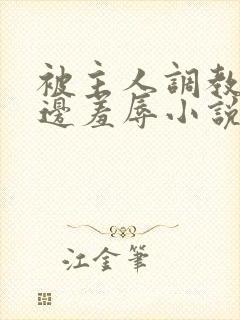 被主人調教
邊羞辱小說
江金筆